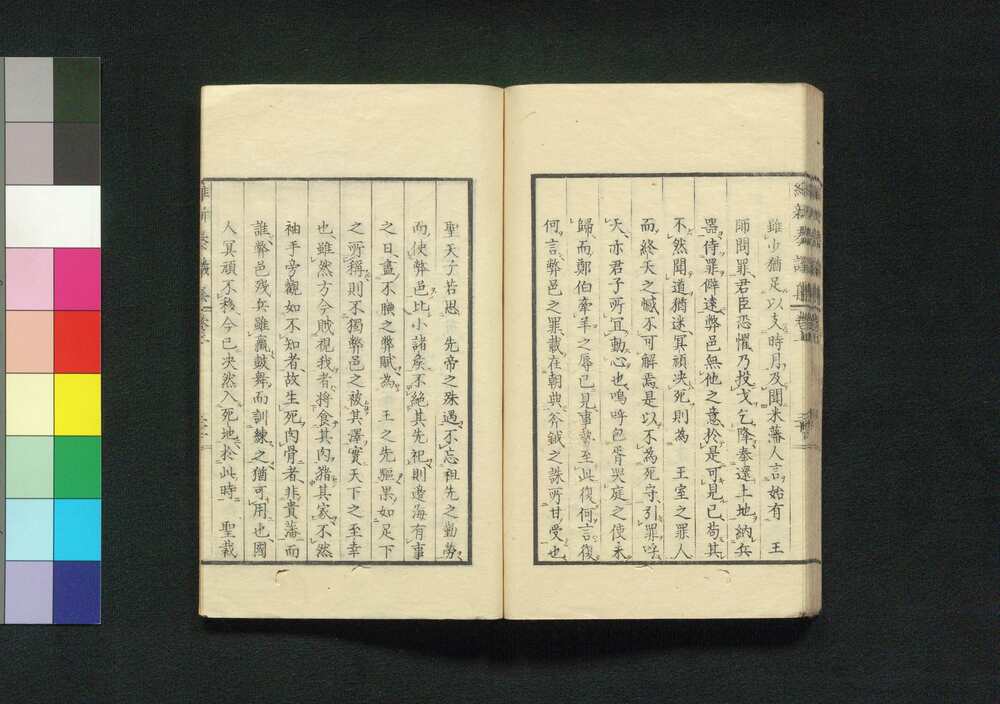 雖少猶足以支時月及聞米藩人言始有　王
師問罪君臣恐懼乃投戈乞降奉還土地納兵
器待罪僻遠弊邑無他之意於是可見已苟其
不然聞道猶迷冥頑决死則為　王室之罪人
而終天之憾不可解焉是以不為死守引罪呼
天亦君子所宜動心也嗚呼包胥哭庭之使未
歸而鄭伯牽羊之辱已見事勢至此復何言復
何言弊邑之罪載在朝典斧鉞之誅所甘受也
聖天子若思　先帝之殊遇不忘祖先之勤勞
而使弊邑比小諸矦不絶其先祀則邊海有事
之日盡不腆之弊賦為　王之先驅果如足下
之所稱則不獨弊邑之被其澤實天下之至幸
也雖然方今賊視我者將食其肉猪其家不然
袖手旁觀如不知者故生死肉骨者非貴藩而
誰弊邑残兵雖羸鼓舞而訓練之猶可用也國
人冥頑不移今已决然入死地於此時　聖裁